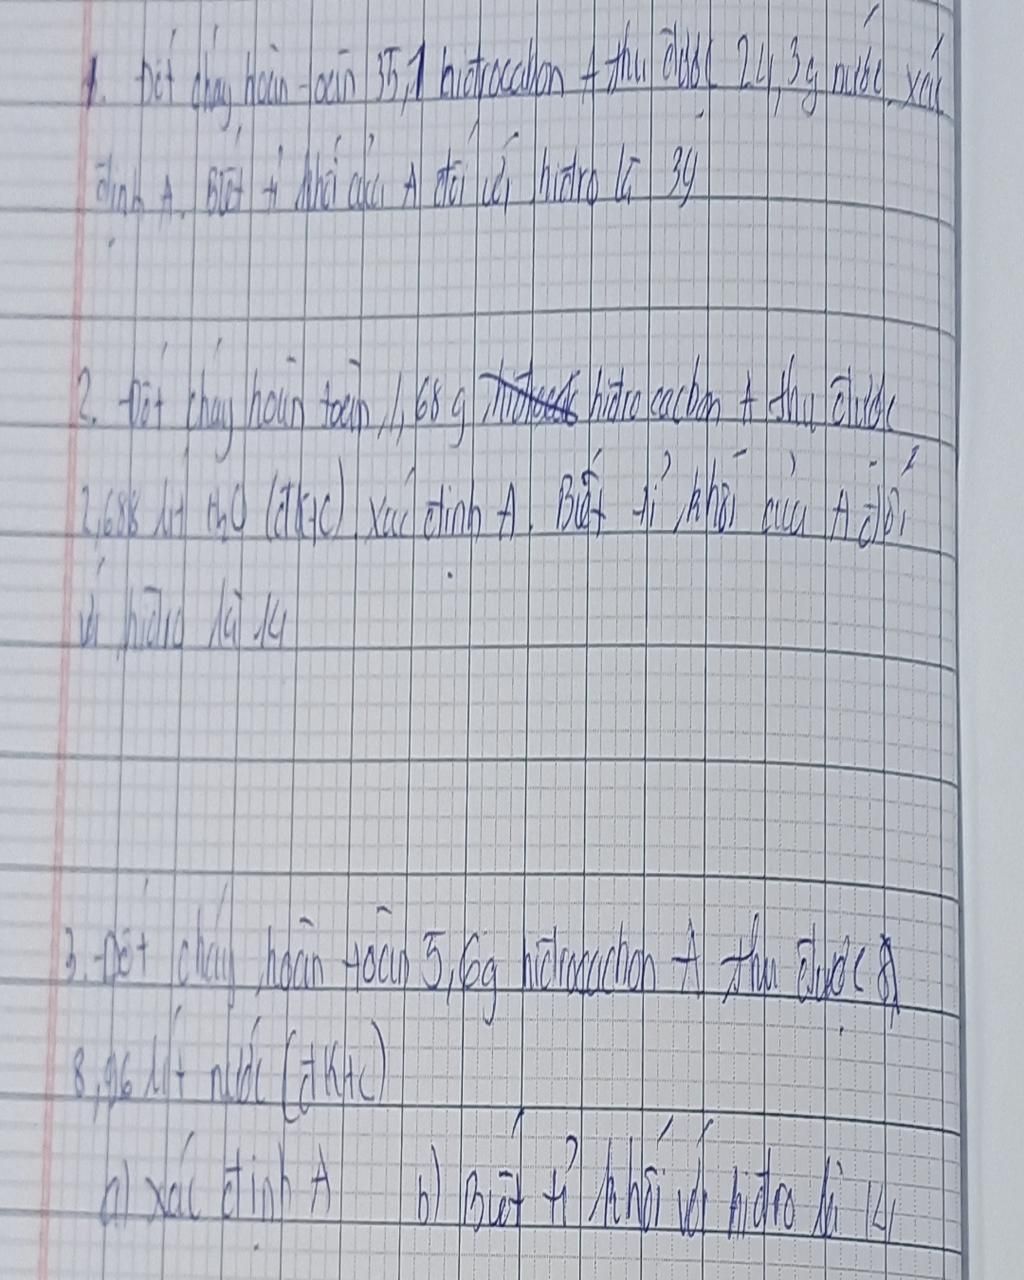 1. Đốt cháy hoàn toàn 35,1 hiđrocacbon A thu được 24,3g nước. xác
định A. Biết tỉ khối của A đối với hiđro là 39
2. Đốt cháy hoàn toàn 1,68 g hiđro cacbon A thu được
2,688 lít H2O (đktc). xác định A. Biết tỉ khối của A đối
với hiđro là 14
3. Đốt cháy hoàn toàn 5,6g hiđrocacbon A thu được
8,96 lít nước (đktc)
a) xác định A b) Biết tỉ khối với hiđro là 14